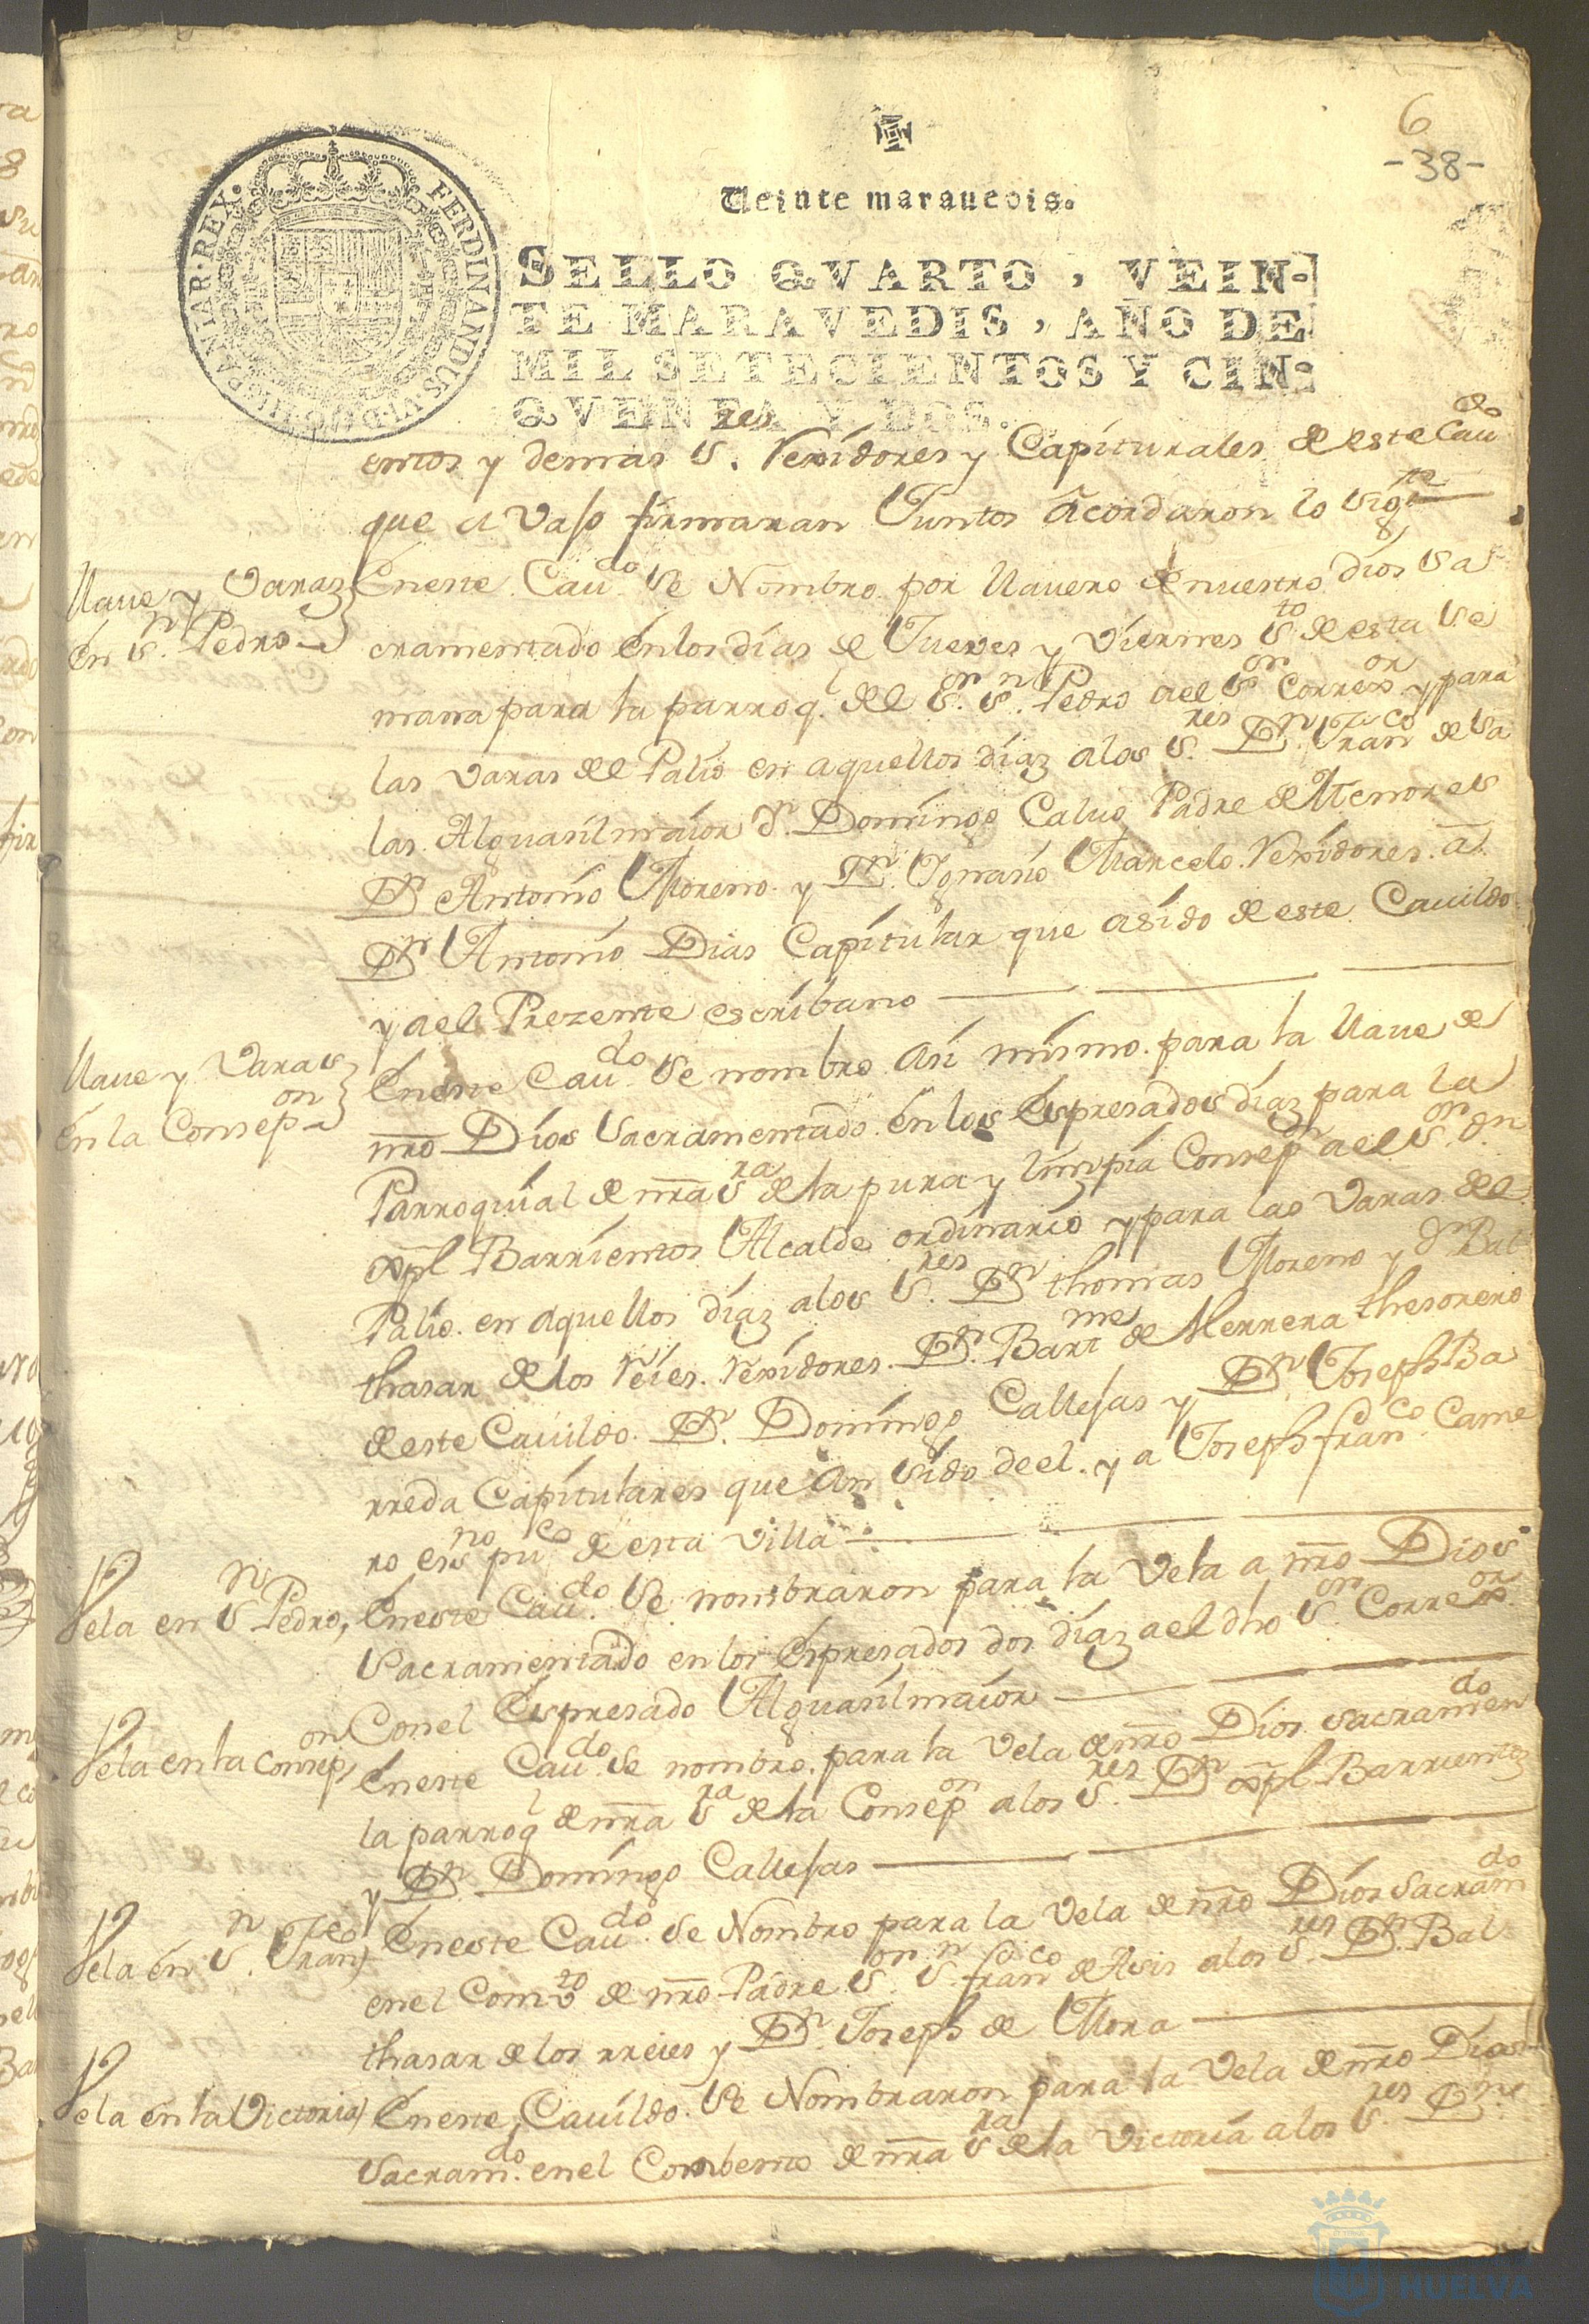 6
-38-
Veinte maravedis.
HISPANIAR·REX· FERDINANDUS·VI·D·G·
SELLO QVARTO, VEIN-
TE MARAVEDIS, AÑO DE
MIL SETECIENTOS Y CIN-
QVENTA Y DOS.
entos y demas S.res Rexidores y Capiturales de este Cau.do
que a vaso firmaran Juntos acordaron lo sig.te
Llaue y Varaz
en S.n Pedro
Eneste Cau.do Se Nombro por llauero de nuestro dios Sa
cramentado enlos dias de Jueves y Viernes S.to de esta Se
mana para la parroq.l del S.or S.n Pedro ael S.or Correx.or y para
las varas del Palio en aquellos diaz alos S.res D.n Fran.co de Sa
las Alguasilmaior D.n Domingo Calvo Padre de Menores
D.n Antonio Moreno y D.n Ygnasio Marcelo Rexidores. a
D.n Antonio Dias Capitular que asido de este Cauildo
y ael Prezente escribano
Llaue y Varas
en la Consep.on
Eneste Cau.do Se nombro Asi mismo para la llaue de
nro Dios Sacramentado en los Espresados diaz para la
Parroquial de nra S.ra de la pura y limpia Consep.on ael S.or D.n
Xpl Barrientos Alcalde ordinario y para las Varas del
Palio en aquellos diaz alos S.res D.n thomas Moreno y D.n Bal
thasar de los Reies Rexidores D.n Bart.me de Herrera thesorero
de este Cauildo D.n Domingo Callejas y D.n Joseph Ba
rreda Capitulares que an sido deel. y a Joseph fran.co Came
ro es.no pu.co de esta villa
Vela en S.n Pedro,
Eneste Cau.do Se nombraron para la Vela a nro Dios
Sacramentado en los Espresados dos diaz ael dho S.or Correx.or
Conel Espresado Alguasilmaior
Vela en la Consep.on
Eneste Cau.do Se nombro para la Vela de nro Dios sacramen.do en
la parroq.l de nra S.ra de la Consep.on alos S.res D.n Xpl Barrientos
y D.n Domingo Callejas
Vela en S.n Fran.co
Eneste Cau.do Se Nombro para la Vela de nro Dios Sacram.do
enel Comv.to de nro Padre S.or S.n fran.co de Asis alos S.res D.n Bal
thasar de los rreies y D.n Joseph de Mora
Vela en la Victoria
Eneste Cauildo Se Nombraron para la Vela de nro Dios
Sacram.do enel Combento de nra S.ra de la Victoria alos S.res D.n
HUELVA